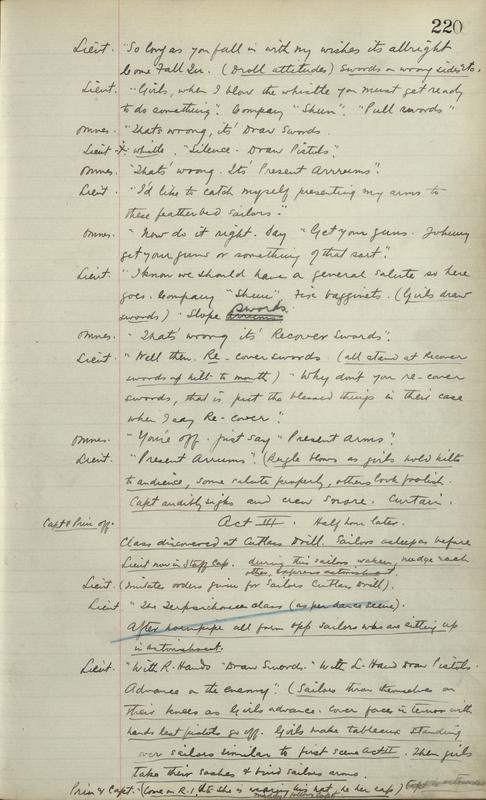 220
Lieut. "So long as you fall in with my wishes its allright
Come Fall In. (Droll attitudes) swords on wrong sides etc.
Lieut. "Girls, when I blow the whistle you must get ready
to do something". Company "Shun". "Pull swords"
Omnes. "Thats wrong, its' Draw Swords.
Lieut whistle. "Silence. Draw Pistols".
Omnes. "Thats' wrong. Its' Present Arrrums".
Lieut. "I'd like to catch myself presenting my arms to
these featherbed sailors".
Omnes. "Now do it right. Say "Get your guns. Johnny
get your guns or something of that sort".
Lieut. "I know we should have a general salute so here
goes. Company "Shun" Fix bagginets. (Girls draw
swords) "Slope swords
Omnes. "That's wrong its' Recover Swords".
Lieut. "Well then. Re-cover swords. (all stand at Recover
swords up hilt to mouth) "Why dont you re-cover
swords, that is put the blessed things in their case
when I say Re-cover".
Omnes. "You're off. just say "Present Arms".
Lieut. "Present Arrums". (Bugle blows as girls hold hilts
to audience, some salute properly, others look foolish.
Capt audibly sighs and crew snore. Curtain.
Capt & Prin off. Act III. Half hour later.
Class discovered at Cutlass Drill. Sailors asleep as before
Lieut now in Staff Cap. during this sailors waken, nudge each
other, express astonishment.
Lieut. (Imitates orders given for Sailors Cutlass Drill).
Lieut. "The Terpsichorean class (as per dance scene).
After hornpipe all form opp sailors who are sitting up
in astonishment.
Lieut. "With R. Hand "Draw Swords." With L. Hand Draw Pistols.
Advance on the enemy". (Sailors throw themselves on
their knees as Girls advance. Cover face in terror with
hands lest pistols go off. Girls make tableaux standing
over sailors similar to first scene Act II. Then girls
take their sashes & bind sailors arms.
Prin & Capt. (Come on R. 1 E she is wearing his hat, he her cap)